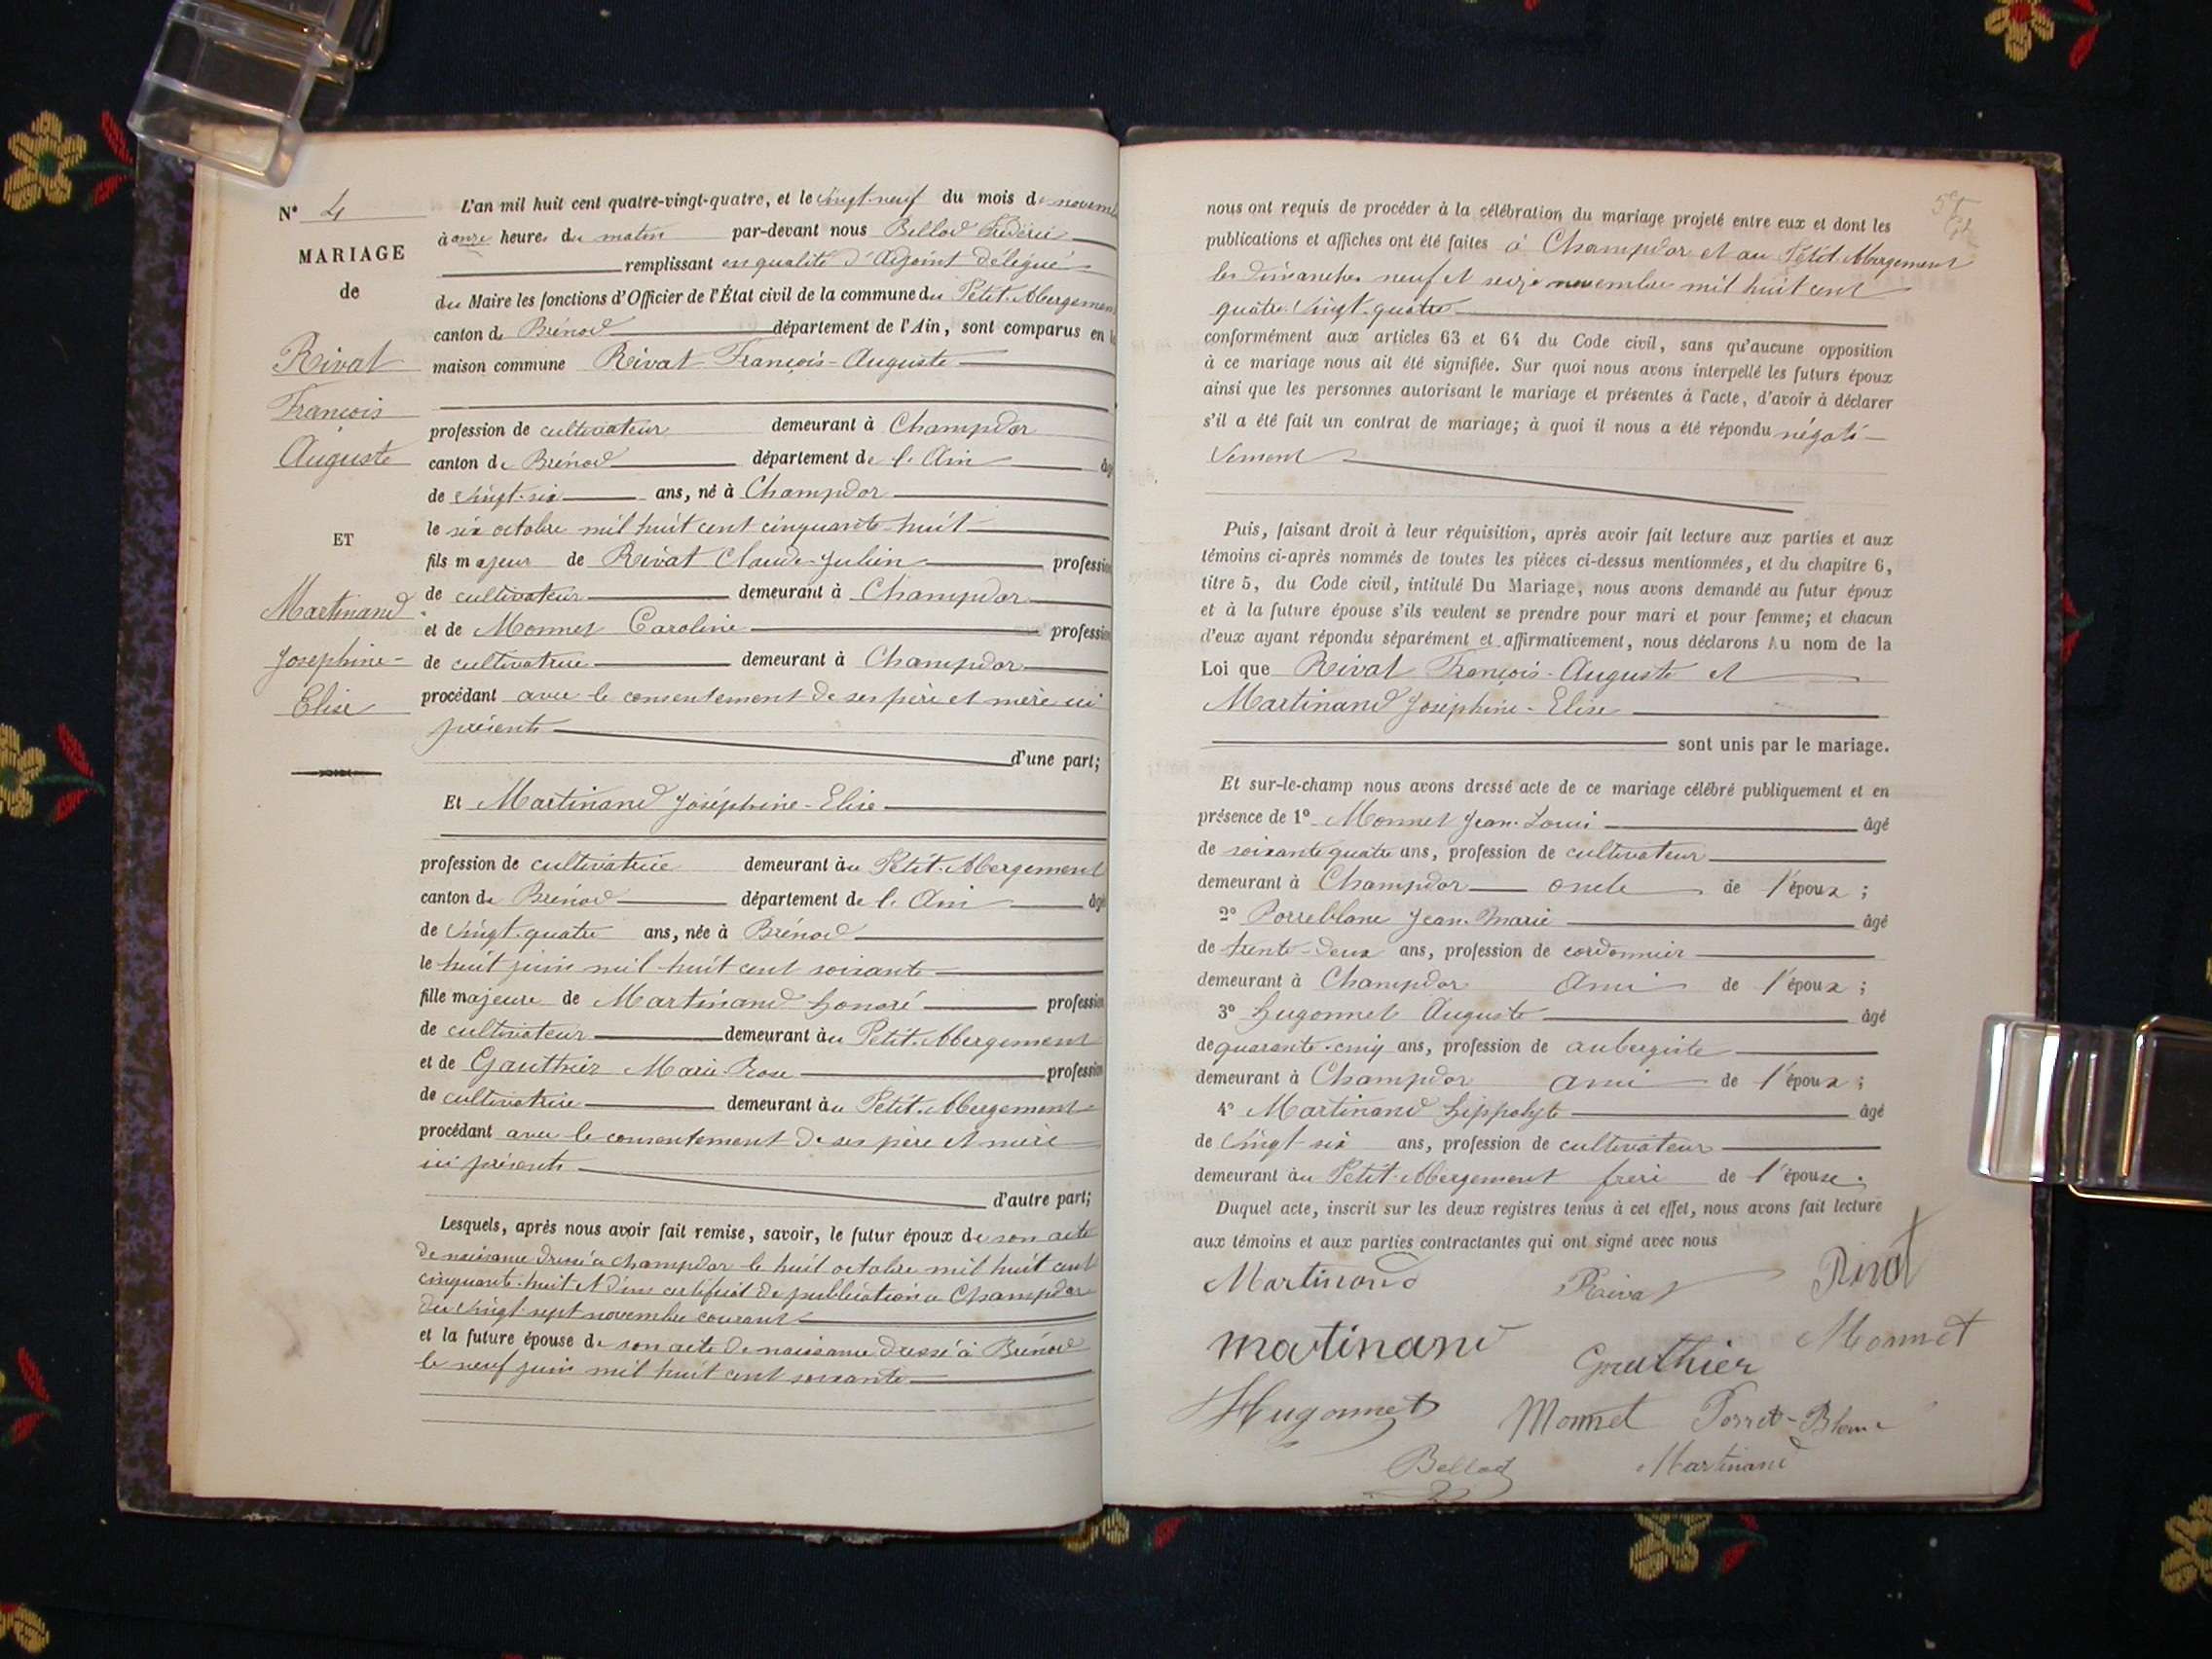 N° 4
MARIAGE
de
Rivat
François
Auguste
ET
Martinand
Joséphine-
Elise
L'an mil huit cent quatre-vingt-quatre, et le vingt-neuf du mois de novemb
à onze heures du matin par-devant nous Bellod Frédéric
remplissant en qualité d'Adjoint délégué
du Maire les fonctions d'Officier de l'État civil de la commune du Petit-Abergemen
canton de Brénod département de l'Ain, sont comparus en la
maison commune Rivat François-Auguste
profession de cultivateur demeurant à Champdor
canton de Brénod département de l'Ain âg
de vingt-six ans, né à Champdor
le six octobre mil huit cent cinquante-huit
fils majeur de Rivat Claude-Julien profession
de cultivateur demeurant à Champdor
et de Monnet Caroline profession
de cultivatrice demeurant à Champdor
procédant avec le consentement de ses père et mère ici
présents
d'une part;
Et Martinand Joséphine-Elise
profession de cultivatrice demeurant au Petit-Abergement
canton de Brénod département de l'Ain âgé
de vingt-quatre ans, née à Brénod
le huit juin mil huit cent soixante
fille majeure de Martinand Honoré profession
de cultivateur demeurant au Petit-Abergement
et de Gauthier Marie-Rose profession
de cultivatrice demeurant au Petit-Abergement
procédant avec le consentement de ses père et mère
ici présents
d'autre part;
Lesquels, après nous avoir fait remise, savoir, le futur époux de son acte
de naissance dressé à Champdor le huit octobre mil huit cent
cinquante-huit et d'un certificat de publication à Champdor
du vingt-sept novembre courant
et la future épouse de son acte de naissance dressé à Brénod
le neuf juin mil huit cent soixante
nous ont requis de procéder à la célébration du mariage projeté entre eux et dont les
publications et affiches ont été faites à Champdor et au Petit-Abergement
les dimanches neuf et seize novembre mil huit cent
quatre-vingt-quatre
conformément aux articles 63 et 64 du Code civil, sans qu'aucune opposition
à ce mariage nous ait été signifiée. Sur quoi nous avons interpellé les futurs époux
ainsi que les personnes autorisant le mariage et présentes à l'acte, d'avoir à déclarer
s'il a été fait un contrat de mariage; à quoi il nous a été répondu négati-
vement
Puis, faisant droit à leur réquisition, après avoir fait lecture aux parties et aux
témoins ci-après nommés de toutes les pièces ci-dessus mentionnées, et du chapitre 6,
titre 5, du Code civil, intitulé Du Mariage, nous avons demandé au futur époux
et à la future épouse s'ils veulent se prendre pour mari et pour femme; et chacun
d'eux ayant répondu séparément et affirmativement, nous déclarons Au nom de la
Loi que Rivat François-Auguste et
Martinand Joséphine-Elise
sont unis par le mariage.
Et sur-le-champ nous avons dressé acte de ce mariage célébré publiquement et en
présence de 1° Monnet Jean-Louis âgé
de soixante quatre ans, profession de cultivateur
demeurant à Champdor oncle de l'époux;
2° Porreblanc Jean-Marie âgé
de trente-deux ans, profession de cordonnier
demeurant à Champdor ami de l'époux;
3° Hugonnet Auguste âgé
de quarante-cinq ans, profession de aubergiste
demeurant à Champdor ami de l'époux;
4° Martinand Hippolyte âgé
de vingt-six ans, profession de cultivateur
demeurant au Petit-Abergement frère de l'épouse.
Duquel acte, inscrit sur les deux registres tenus à cet effet, nous avons fait lecture
aux témoins et aux parties contractantes qui ont signé avec nous
Martinand Rivat Rivat
Martinand Gauthier Monnet
Hugonnet Monnet Porret-Blanc
Bellod Martinand